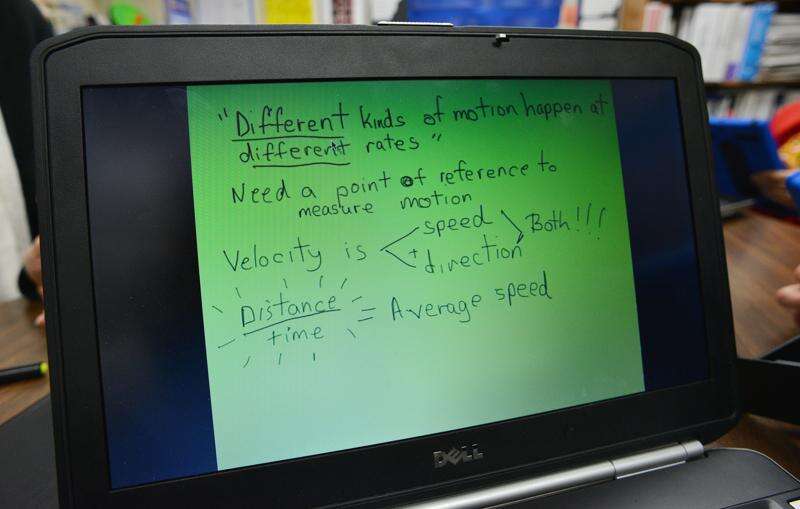 "Different kinds of motion happen at
different rates"
Need a point of reference to
measure motion
Velocity is < speed + direction > Both!!!
Distance
time
= Average speed
DELL